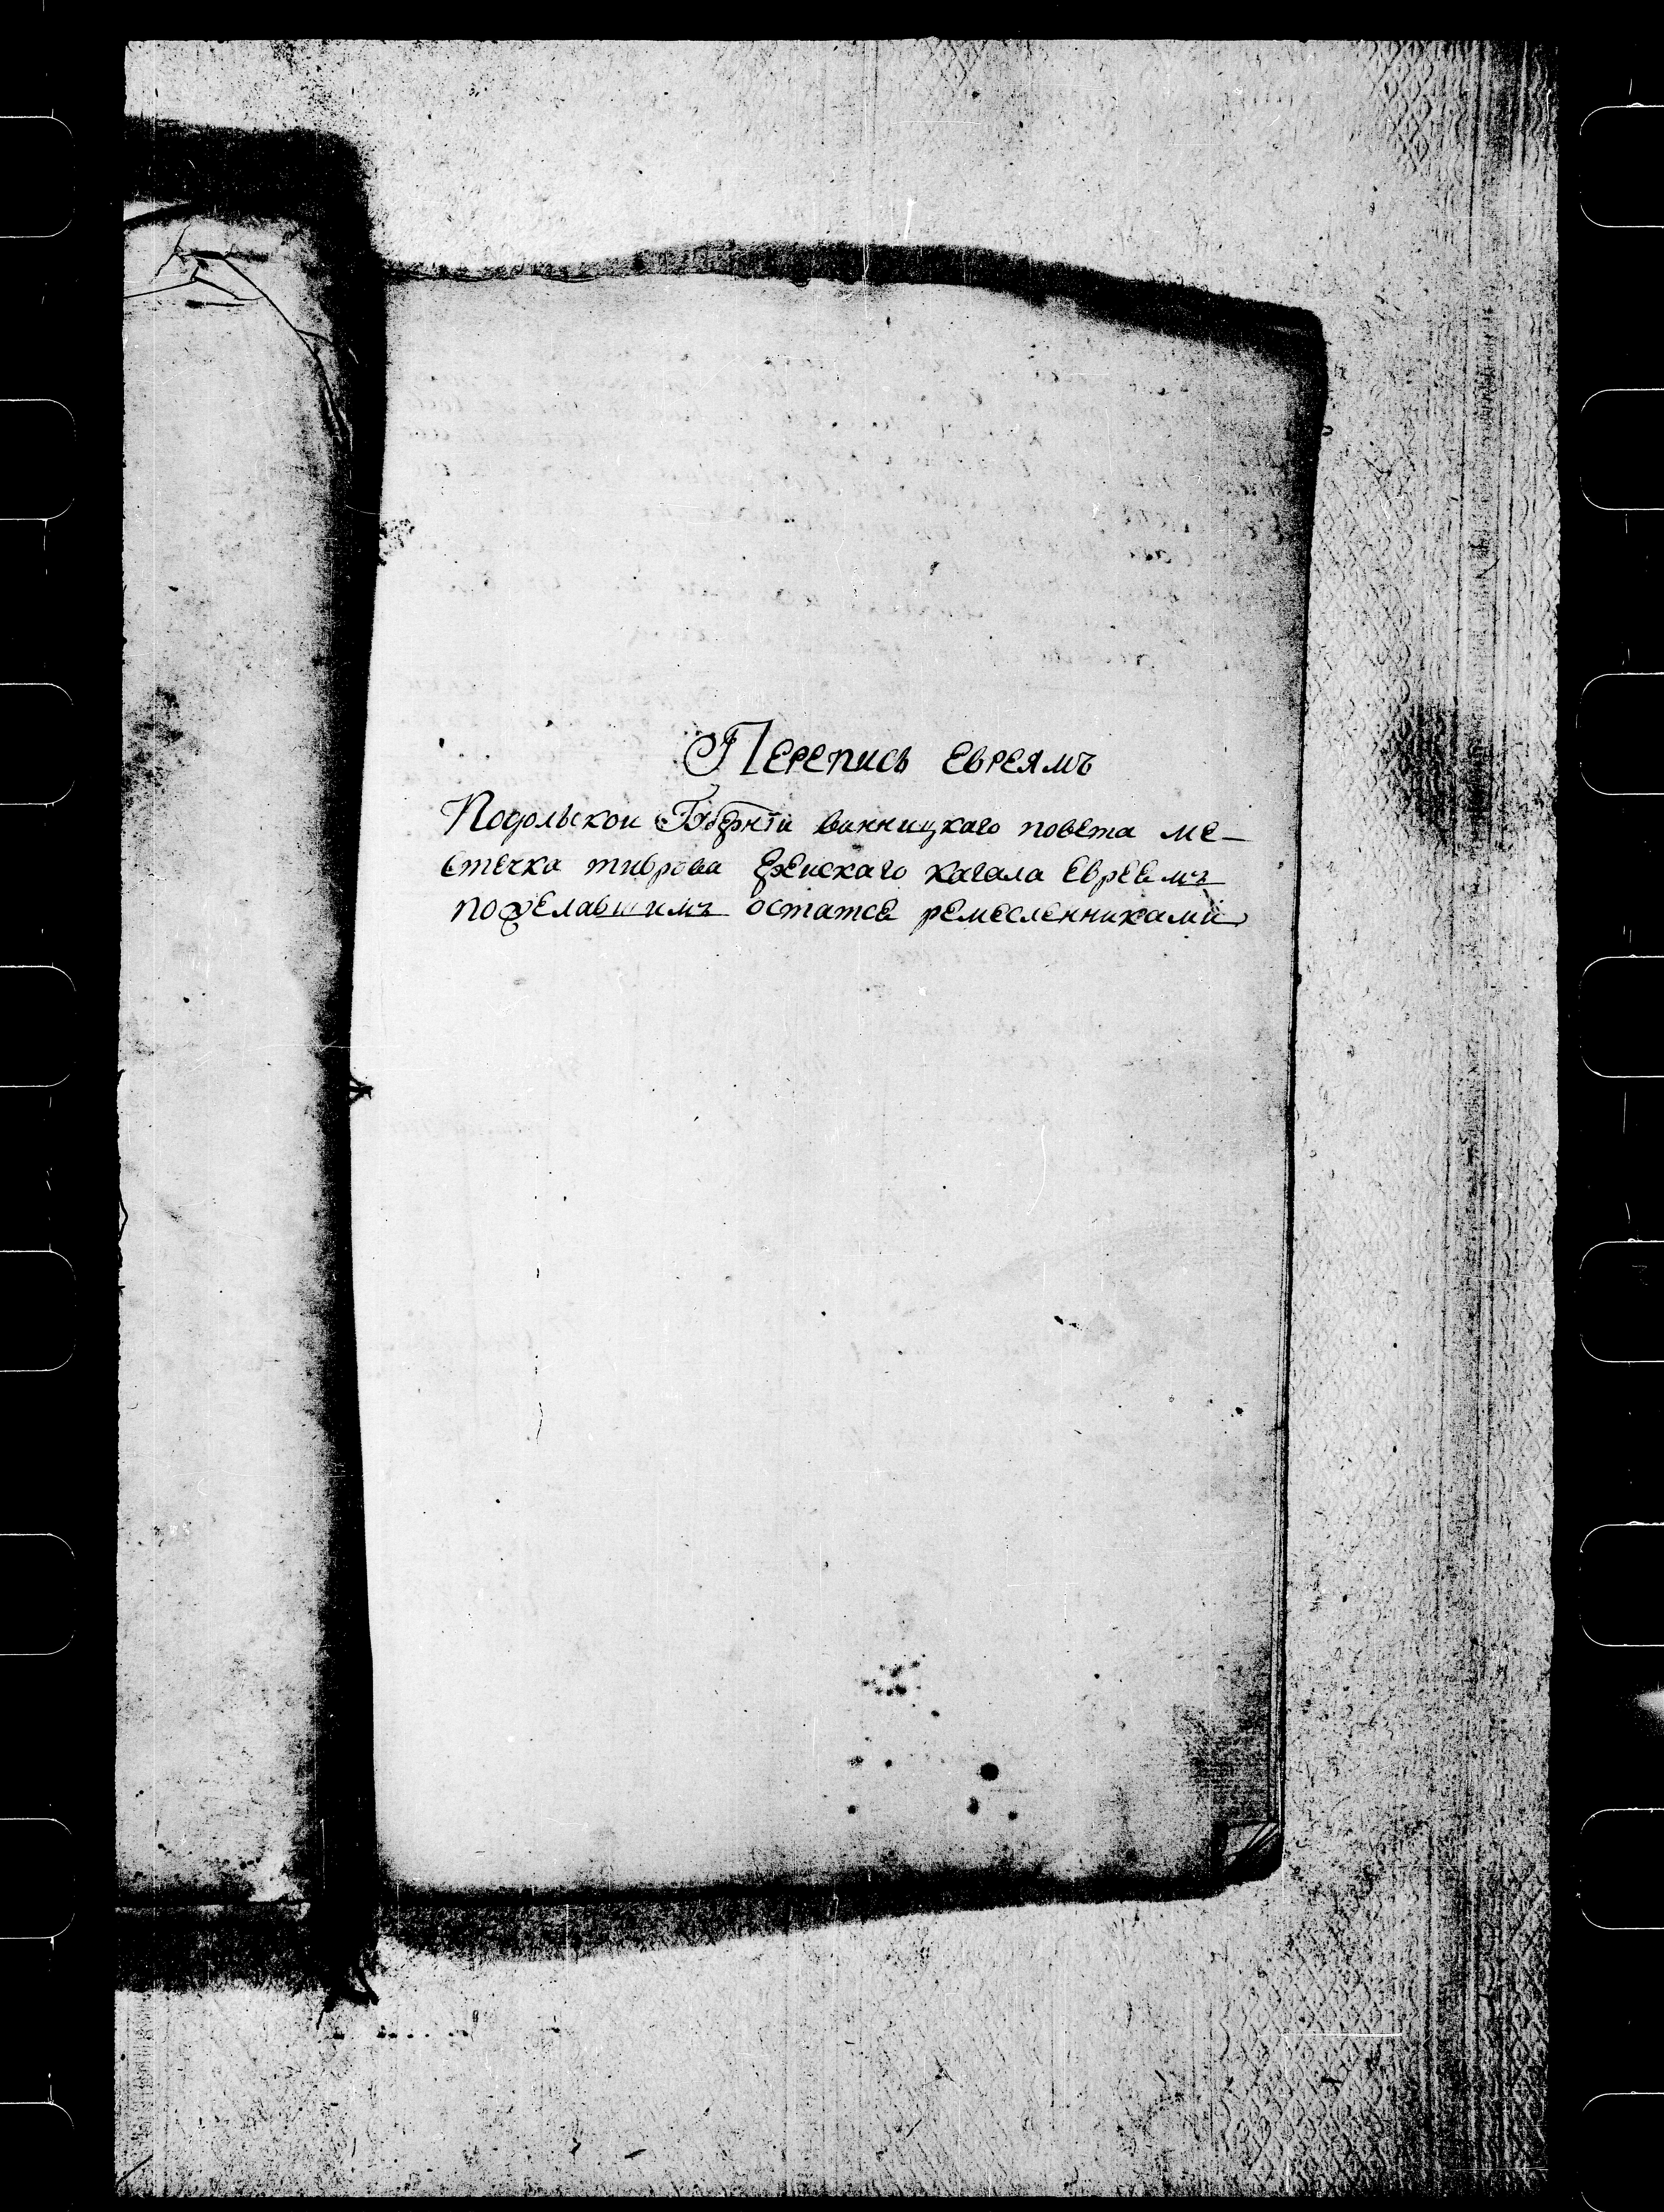 Перепись евреямъ
Подольской Губерніи винницкаго повета ме-
стечка тиврова еврейскаго кагала Евреемъ
пожелавшимъ остатсе ремесленниками